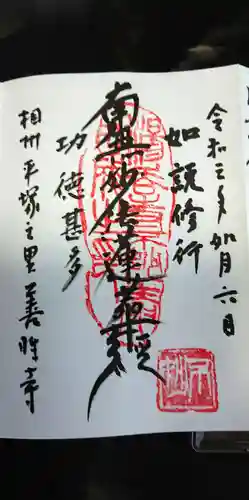 令和三年如月六日
如説修行
南無妙法蓮華経
功徳甚多
相州平塚之里善性寺